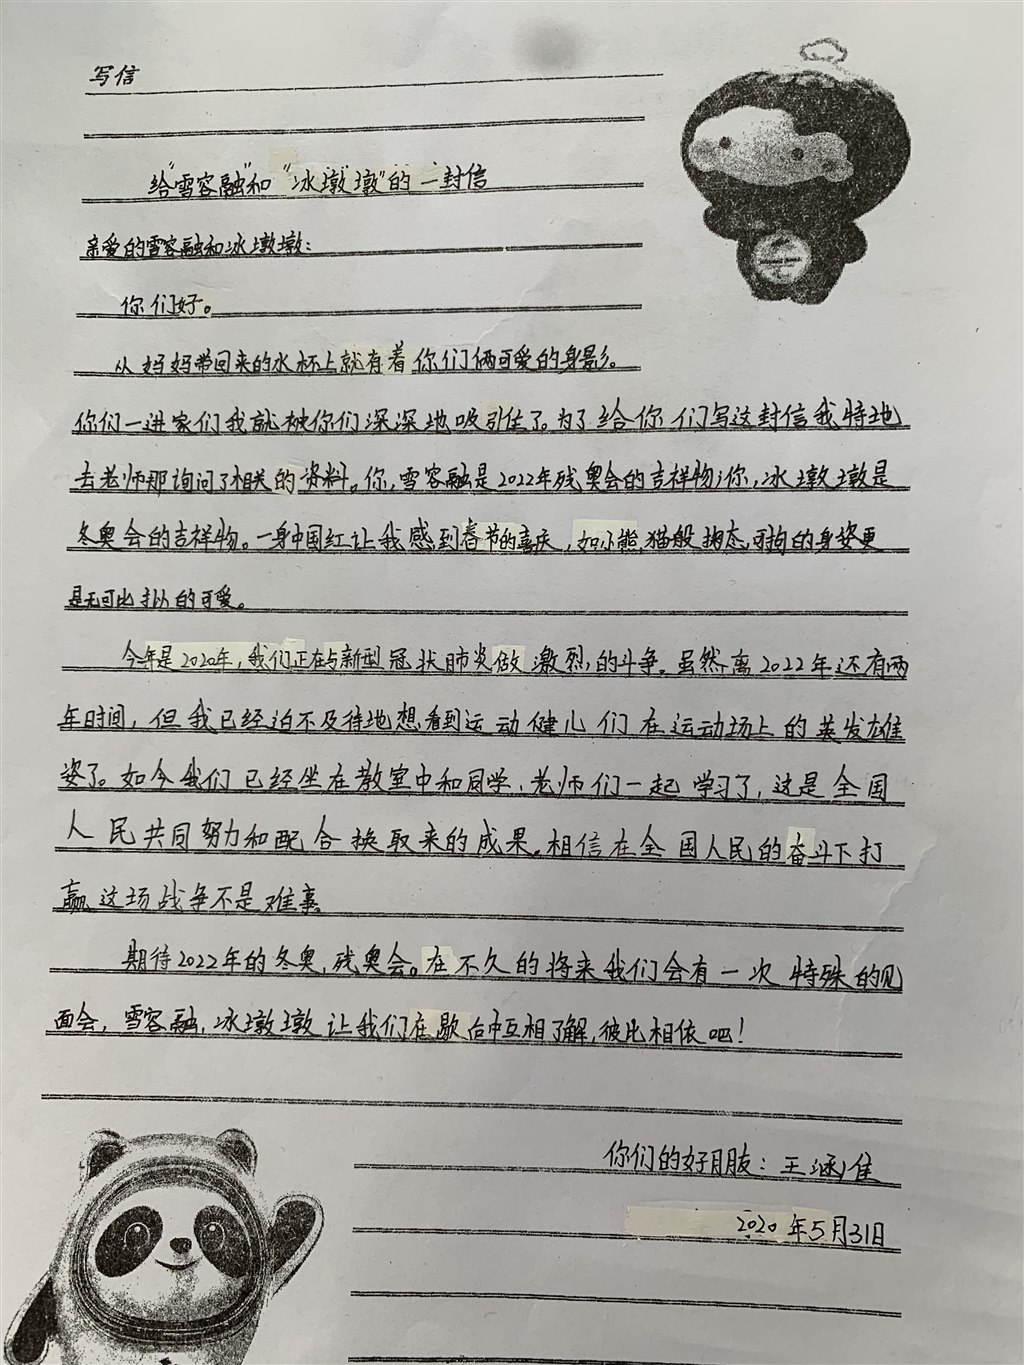 写信
给"雪容融"和"冰墩墩"的一封信
亲爱的雪容融和冰墩墩:
你们好。
从妈妈带回来的水杯上就有着你们俩可爱的身影。
你们一进家们我就被你们深深地吸引住了。为了给你们写这封信我特地
去老师那询问了相关的资料。你,雪容融是2022年残奥会的吉祥物;你,冰墩墩是
冬奥会的吉祥物。一身中国红让我感到春节的喜庆,如小熊,猫般掬态可掬的身姿更
是无可比拟的可爱。
今年是2020年,我们正在与新型冠状肺炎做激烈的斗争。虽然离2022年还有两
年时间,但我已经迫不及待地想看到运动健儿们在运动场上的英发雄
姿了。如今我们已经坐在教室中和同学、老师们一起学习了,这是全国
人民共同努力和配合换取来的成果。相信在全国人民的奋斗下打
赢这场战争不是难事。
期待2022年的冬奥,残奥会。在不久的将来我们会有一次特殊的见
面会,雪容融,冰墩墩让我们在歇台中互相了解,彼比相依吧!
你们的好朋友:王涵
2020年5月31日